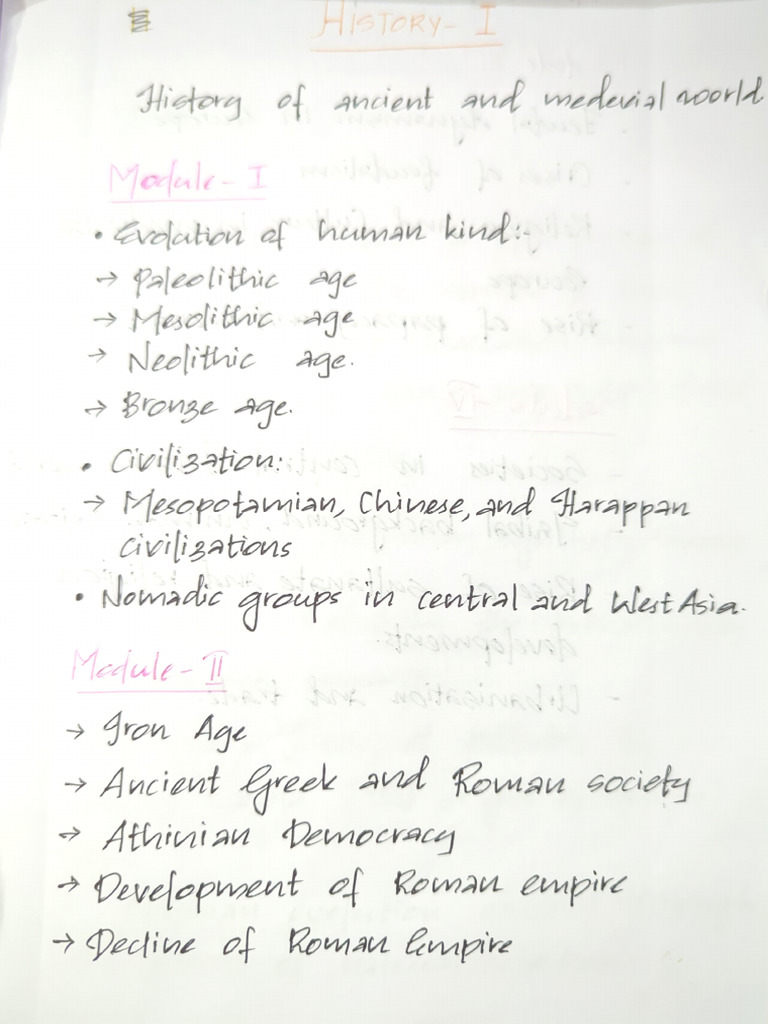 HISTORY - I
History of ancient and medevial world
Module - I
• Evolution of human kind:-
→ Paleolithic age
→ Mesolithic age
→ Neolithic age.
→ Bronze age.
• Civilization:
→ Mesopotamian, Chinese, and Harappan
civilizations
• Nomadic groups in central and West Asia.
Module - II
→ Iron Age
→ Ancient Greek and Roman society
→ Athinian Democracy
→ Development of Roman empire
→ Decline of Roman Empire